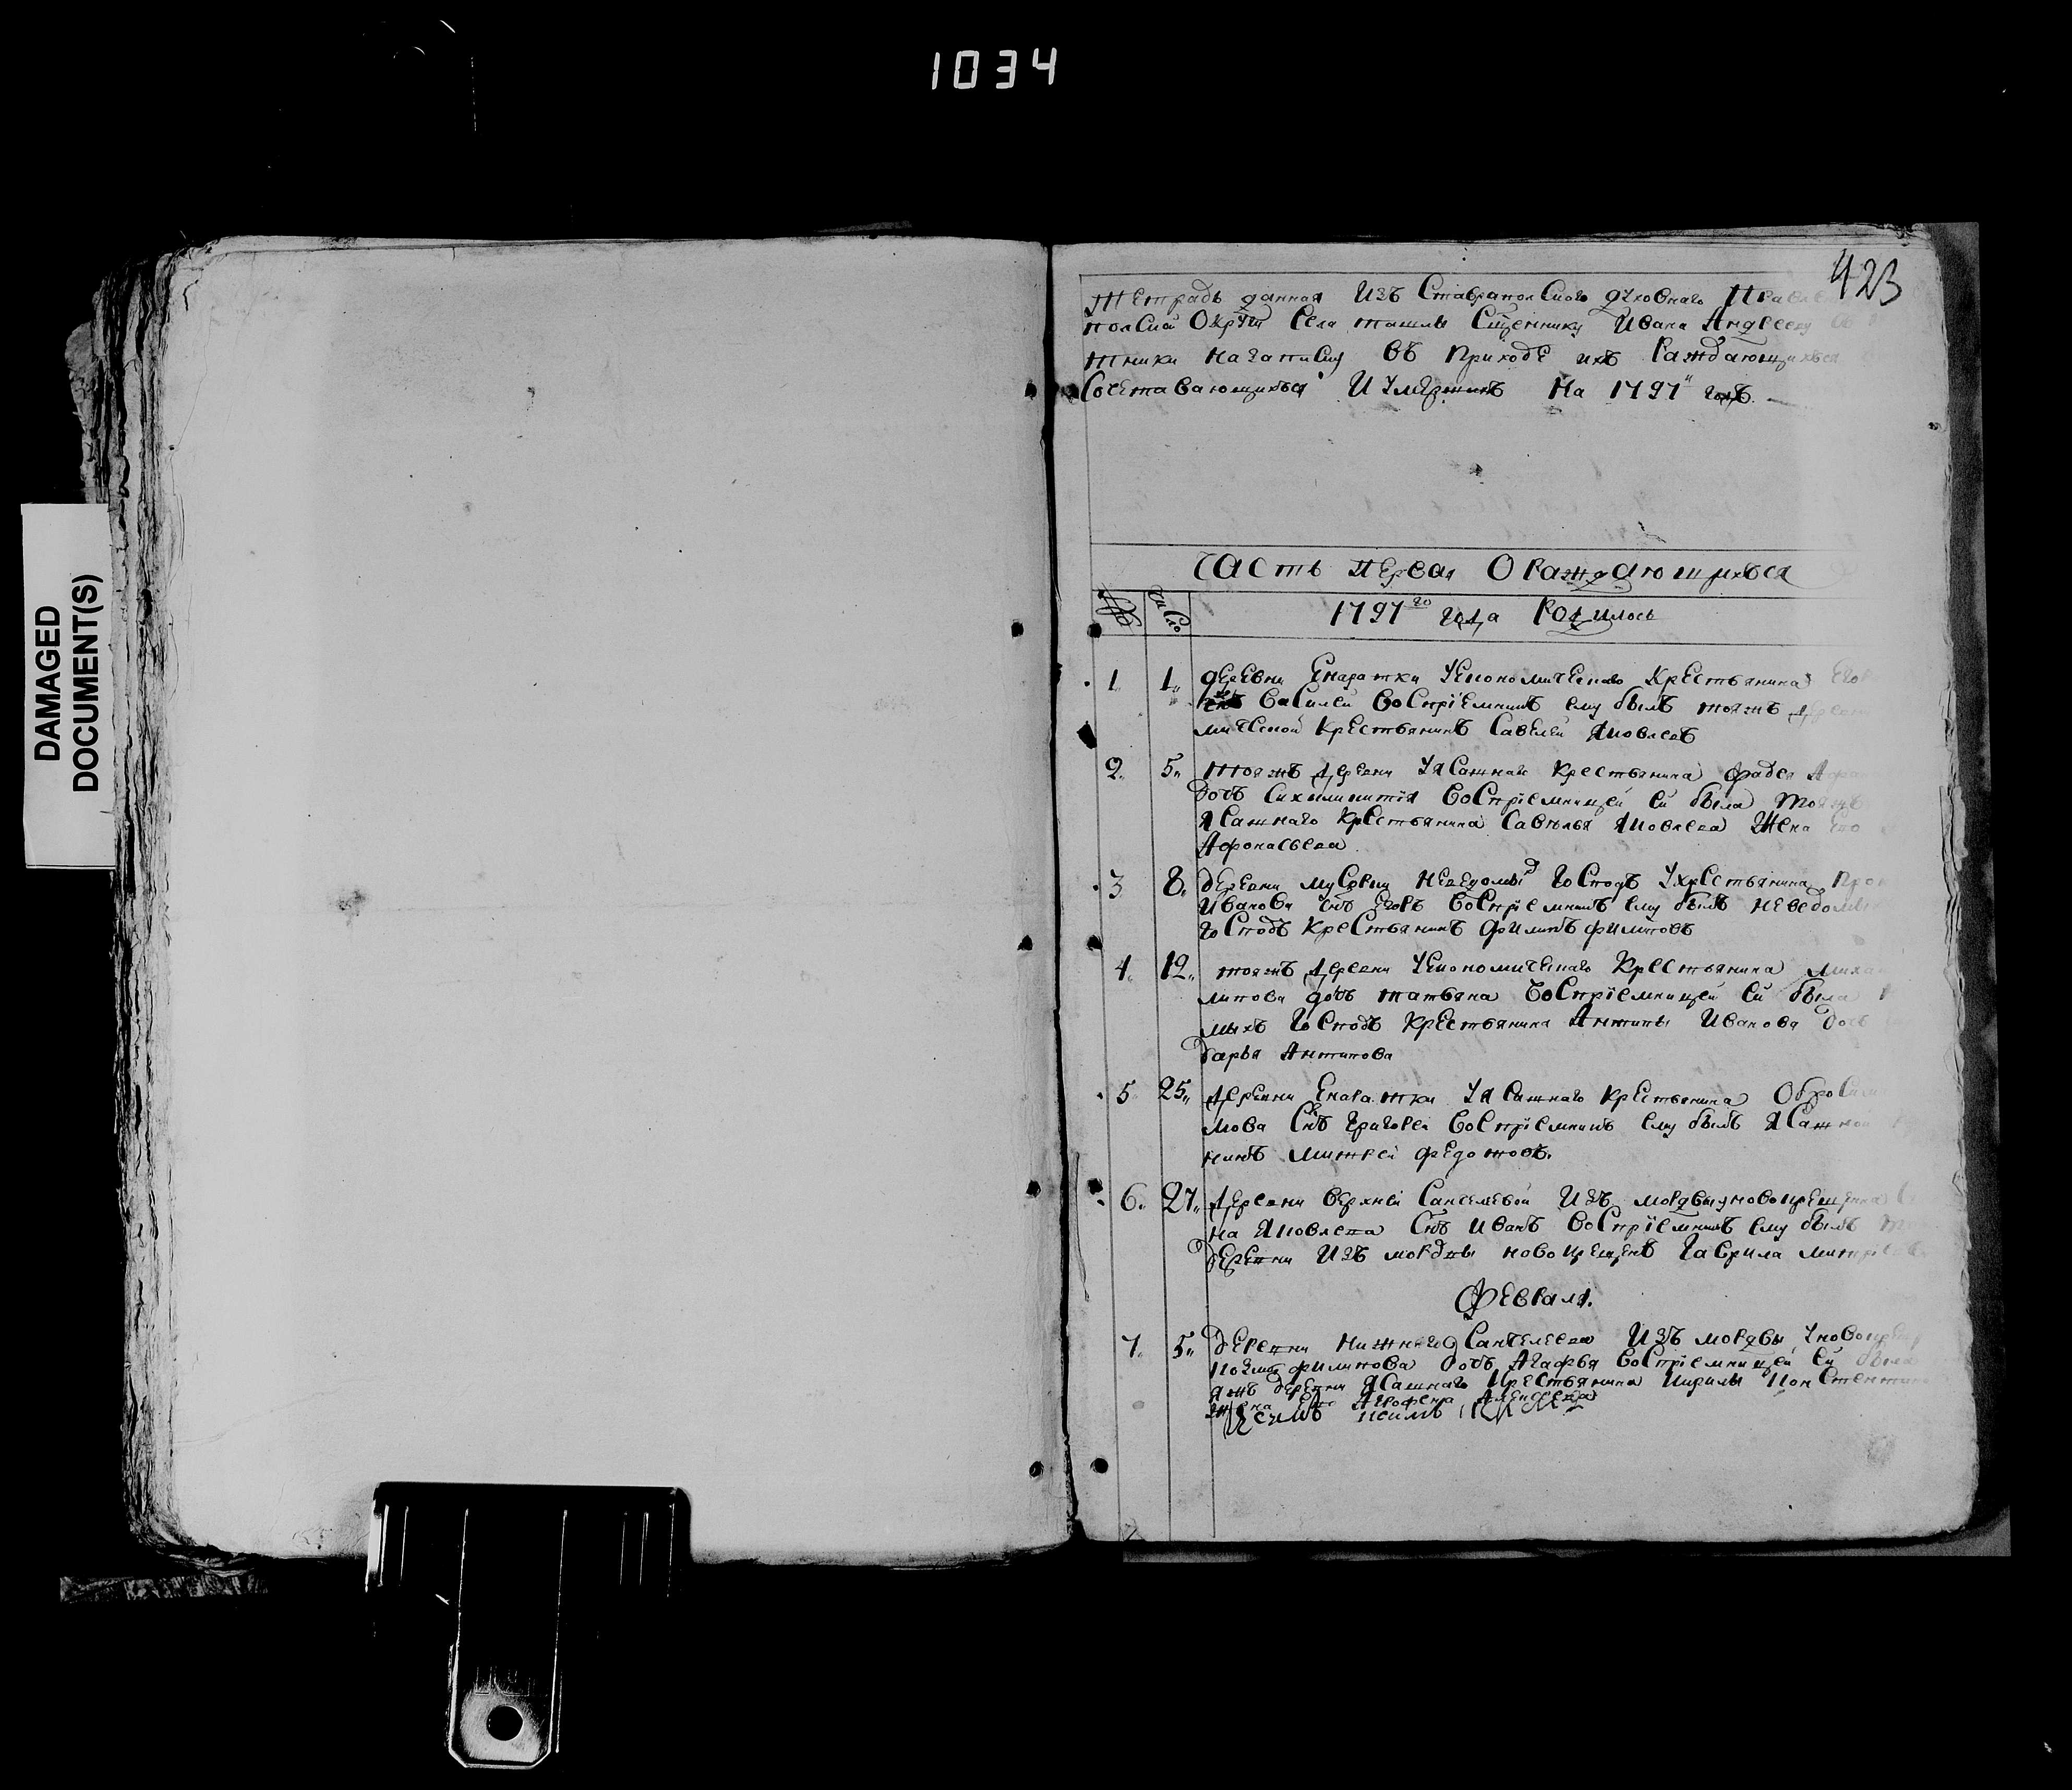 1034
DAMAGED
DOCUMENT(S)
423
Тетрадь данная Изъ Ставрапольскаго духовнаго
польской Округи села ташлы Сщеннику Ивану Андрееву
тники на записку въ приходе ихъ Раждающихся
Сочетавающихъся И Умершихъ На 1797" годъ.
часть первая О Раждающихъся
№ число
1797го года Родилось
1. 1. деревни Енаратки Уекономическаго крестьянина
снъ василей воспрiемникъ ему былъ тояжъ
мической крестьянинъ Савелей Яковлевъ
2. 5. тояжъ деревни Уясашнаго крестьянина фадея
дочь воспрiемницей ей была тояжъ
ясашнаго крестьянина Савелья Яковлева жена его
Афонасьева
3 8. деревни мусорки неведомыхъ Господъ Укрестьянина
Иванова снъ Егоръ воспрiемникъ ему былъ неведомы
Господъ крестьянинъ филипъ филиповъ
4. 12. тояжъ деревни Уекономическаго крестьянина
липова дочь татьяна воспрiемницей ей была
мыхъ Господъ крестьянина Антипы Иванова дочь
дарья Антипова
5. 25. деревни Енаратки Уясашнаго крестьянина
мова снъ григорей воспрiемникъ ему былъ ясашной
нинъ митрей федотовъ.
6. 27. деревни верхней Санчелеевой Изъ мордвы уновокрещенна
на Яковлева снъ иванъ воспрiемникъ ему былъ
деревни Изъ мордвы новокрещенъ Гаврила
Февраля.
7. 5. деревни нижнего Санчелеева Изъ мордвы
филипова дочь Агафья воспрiемницей ей была
яжъ деревни ясашнаго крестьянина кирилы
жена его Агрофена Алексеева